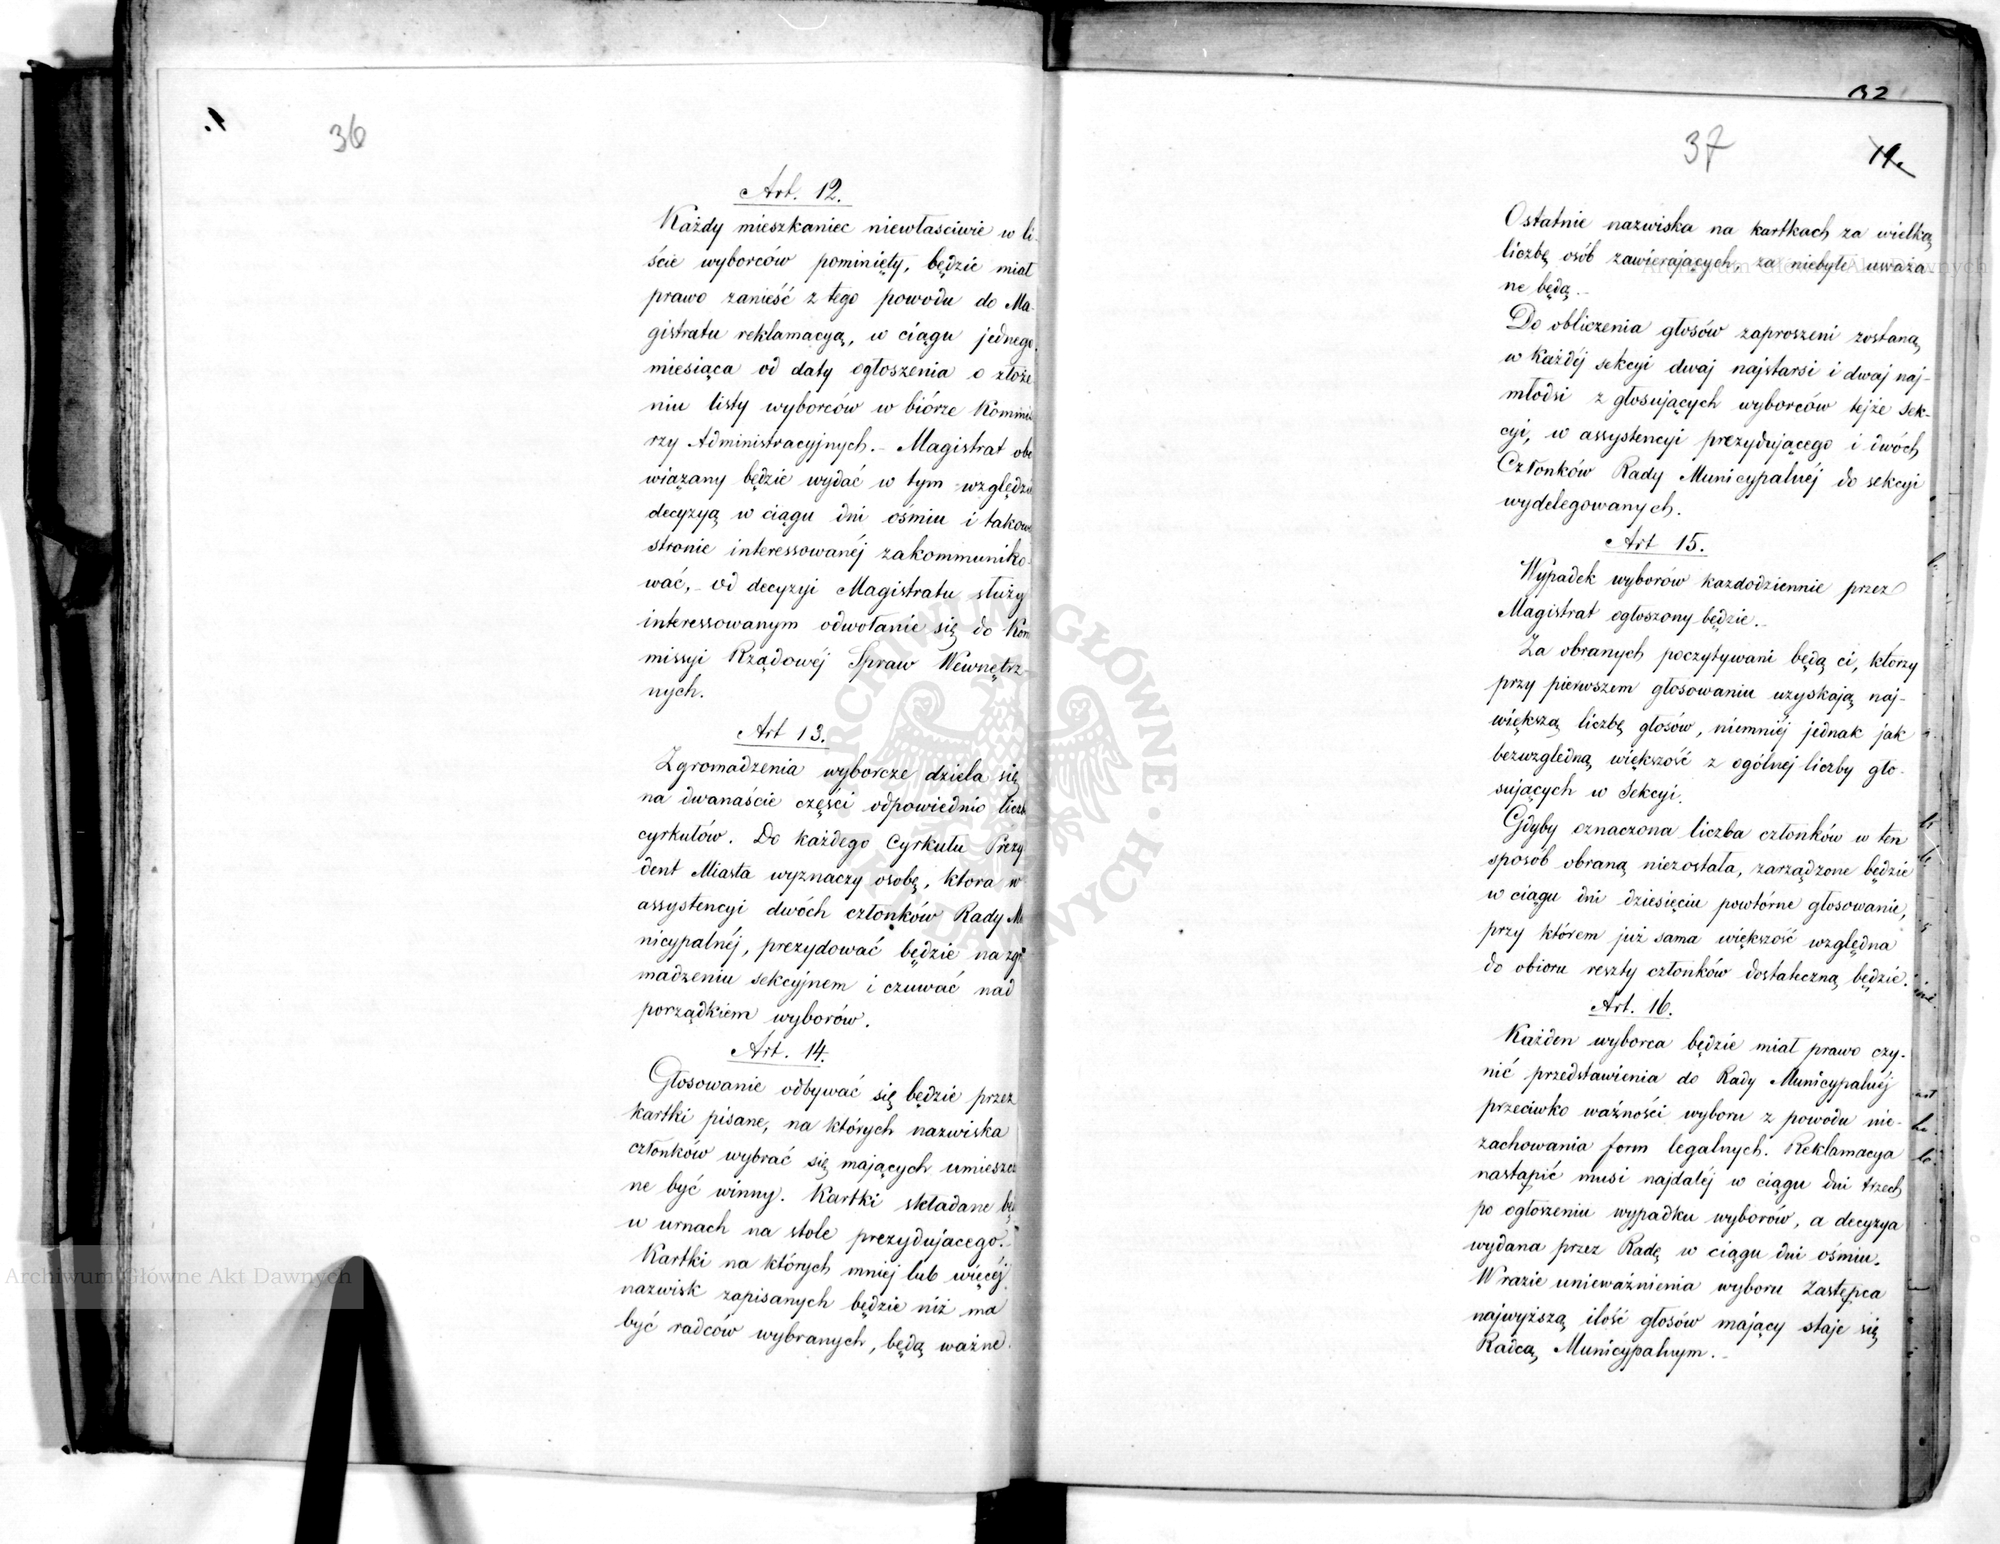 36
Art. 12.
Każdy mieszkaniec niewłaściwie w li-
ście wyborców pominięty, będzie miał
prawo zanieść z tego powodu do Ma-
gistratu reklamacyą, w ciągu jednego
miesiąca od daty ogłoszenia o złoże
niu listy wyborców w biórze Kommis
rzy Administracyjnych. – Magistrat obo
wiązany będzie wydać w tym względzie
decyzyą w ciągu dni ośmiu i takow
stronie interessowanéj zakommuniko-
wać, – od decyzyi Magistratu służy
interessowanym odwołanie się do Kom
missyi Rządowéj Spraw Wewnętrz-
nych.
Art 13.
Zgromadzenia wyborcze dziela się
na dwanaście części odpowiednio liczb
cyrkułów. Do każdego Cyrkułu Prezy
dent Miasta wyznaczy osobę, ktora w
assystencyi dwóch członków Rady Mu
nicypalnéj, prezydować będzie na zgr
madzeniu sekcyjnem i czuwać nad
porządkiem wyborów.
Art. 14.
Głosowanie odbywać się będzie przez
kartki pisane, na których nazwiska
członków wybrać się mających umieszcz
ne być winny. Kartki składane bę
w urnach na stole prezydujacego. –
Kartki na których mniej lub więcéj
nazwisk zapisanych będzie niż ma
być radców wybranych, będą ważne.
32
37
11.
Ostatnie nazwiska na kartkach za wielką
liczbę osób zawierających, za niebyłe uważa
ne będą. –
Do obliczenia głosów zaproszeni zostaną
w każdéj sekcyi dwaj najstarsi i dwaj naj-
młodsi z głosujących wyborców tejże sek-
cyi, w assystencyi prezydującego i dwóch
Członków Rady Municypalnéj do sekcyi
wydelegowanych.
Art 15.
Wypadek wyborów kazdodziennie przez
Magistrat ogłoszony będzie. –
Za obranych poczytywani będą ci, ktorzy
przy pierwszem głosowaniu uzyskają naj-
większą liczbę głosów, niemniéj jednak jak
bezwzględną większość z ogólnej liczby gło-
sujących w Sekcyi.
Gdyby oznaczona liczba członków w ten
sposób obraną niezostała, zarządzone będzie
w ciągu dni dziesięciu powtórne głosowanie,
przy którem już sama większość względna
do obioru reszty członków dostateczną będzie.
Art. 16.
Każden wyborca będzie miał prawo czy-
nić przedstawienia do Rady Municypalnéj
przeciwko ważności wyboru z powodu nie-
zachowania form legalnych. Reklamacya
nastąpić musi najdaléj w ciągu dni trzech
po ogłoszeniu wypadku wyborów, a decyzya
wydana przez Radę w ciągu dni ośmiu.
W razie unieważnienia wyboru Zastępca
najwyższą ilość głosów mający staje się
Radcą Municypalnym. –
Archiwum Główne Akt Dawnych
Archiwum Główne Akt Dawnych
ARCHIWUM GŁÓWNE AKT DAWNYCH